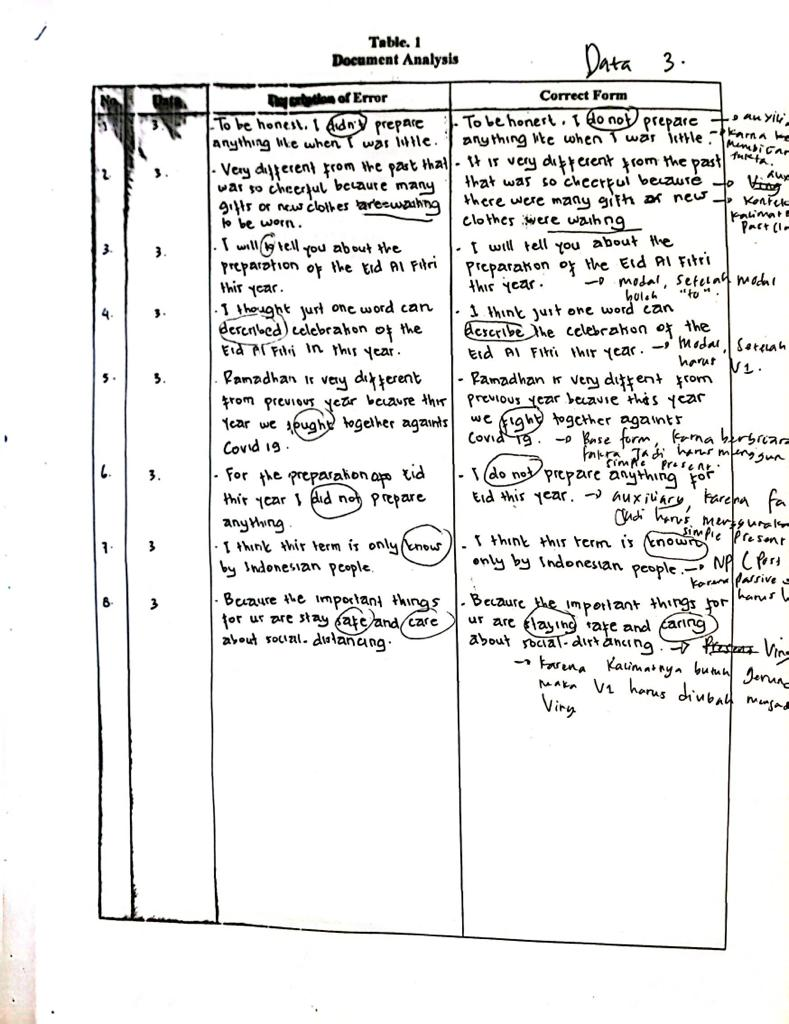 Table. 1
Document Analysis
Data 3.
No. Data Description of Error Correct Form
1. 3.
- To be honest, I didn't prepare
anything like when I was little.
- To be honest. I do not prepare
anything like when I was little.
→ auxili
karna
2. 3.
- Very different from the past that
was so cheerful because many
gifts or new clothes are waiting
to be worn.
- It is very different from the past
that was so cheerful because
there were many gift or new
clothes were waiting
→ Ving
→ Kontek
Kalimat
3. 3.
- I will is tell you about the
preparation of the Eid Al Fitri
this year.
- I will tell you about the
preparation of the Eid Al Fitri
this year. → modal, setelah modal
boleh "to"
4. 3.
- I thought just one word can
described celebration of the
Eid Al Fitri in this year.
- I think just one word can
describe the celebration of the
Eid Al Fitri this year. → Modal, Setelah
harus V1.
5. 3.
- Ramadhan is very different
from previous year because this
year we fought together againts
Covid 19.
- Ramadhan is very diffent from
previous year because this year
we fight together againts
Covid 19. → Base form, karna berbicara
fakta Jadi harus menggun
simple present.
6. 3.
- For the preparation of Eid
this year I did not prepare
anything.
- I do not prepare anything for
Eid this year. → auxiliary, karena fa
Jadi harus menggunakan
simple present
7. 3
- I think this term is only know
by Indonesian people.
- I think this term is known
only by Indonesian people. → NP (Past
karena passive
harus
8. 3
- Because the important things
for us are stay safe and care
about social-distancing.
- Because the important things for
us are staying safe and caring
about social-distancing. → Present Ving
→ Karena Kalimatnya butuh gerun
maka V1 harus diubah menjad
Ving